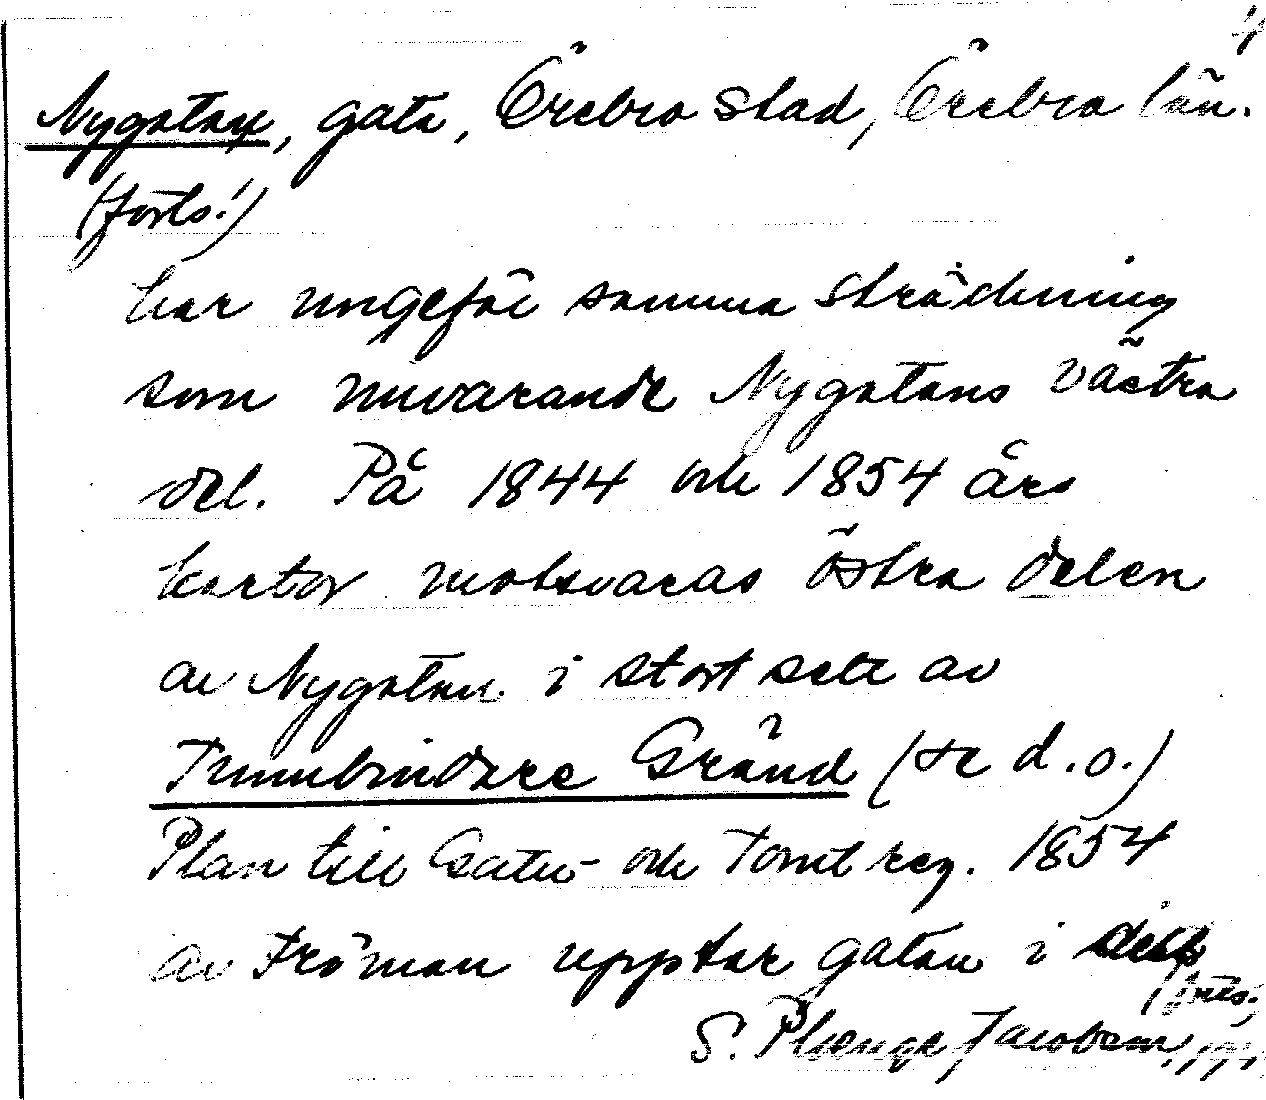 4
Nygatan, gata, Örebro stad, Örebro län.
(forts.!)
har ungefär samma sträckning
som nuvarande Nygatans västra
del. På 1844 och 1854 års
kartor motsvaras östra delen
av Nygatan i stort sett av
Tunnbindare Gränd (se d.o.)
Plan till Gatu- och Tomtreg. 1854
av Fröman upptar gatan i dess
(forts.)
S. Phenge Jacobsen,